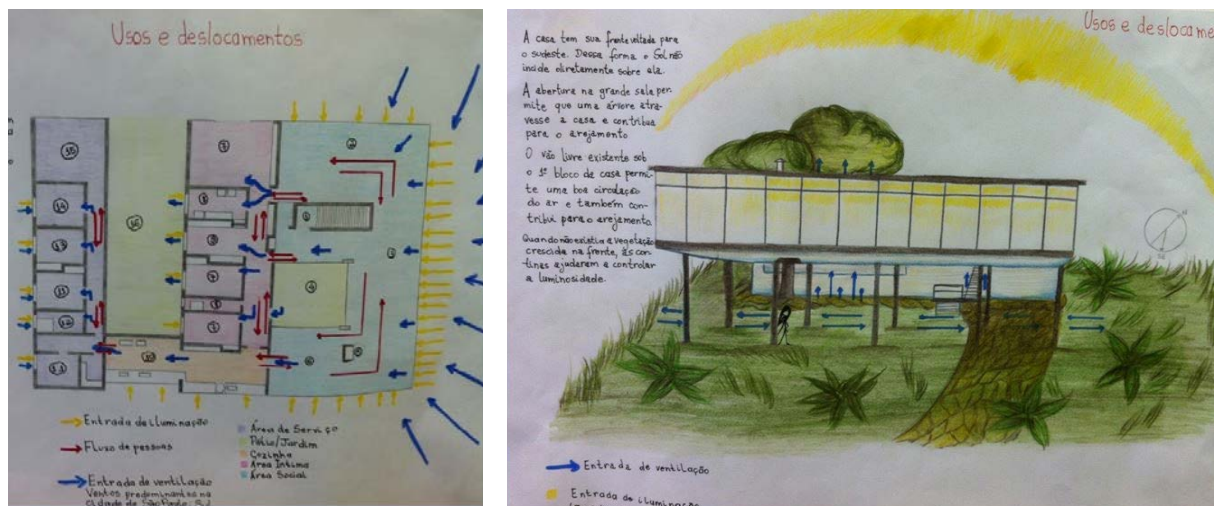 Usos e deslocamentos
Entrada de iluminação
Fluxo de pessoas
Entrada de ventilação
Ventos predominantes na
cidade de São Paulo:
Área de Serviço
Pátio/Jardim
Cozinha
Área Íntima
Área Social
Usos e deslocame
A casa tem sua frente voltada para
o sudeste. Dessa forma o Sol não
incide diretamente sobre ela.
A abertura na grande sala per-
mite que uma árvore atra-
vesse a casa e contribua
para o arejamento
O vão livre existente sob
o 1º bloco de casa permi-
te uma boa circulação
do ar e também con-
tribui para o arejamento.
Quando não existia a vegetação
crescida na frente, as cor-
tinas ajudaram a controlar
a luminosidade.
Entrada de ventilação
Entrada de iluminação